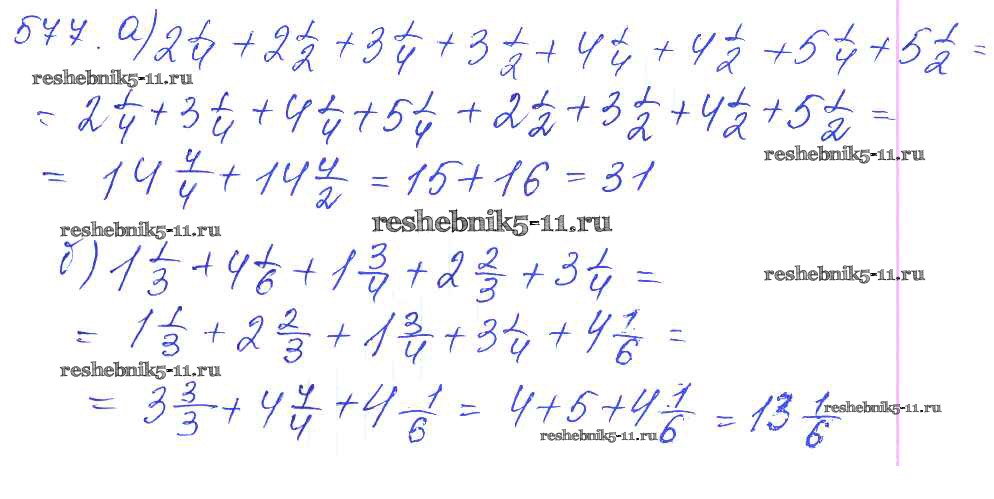 577. а) 2 1/4 + 2 1/2 + 3 1/4 + 3 1/2 + 4 1/4 + 4 1/2 + 5 1/4 + 5 1/2 =
reshebnik5-11.ru
= 2 1/4 + 3 1/4 + 4 1/4 + 5 1/4 + 2 1/2 + 3 1/2 + 4 1/2 + 5 1/2 =
reshebnik5-11.ru
= 14 4/4 + 14 4/2 = 15 + 16 = 31
reshebnik5-11.ru reshebnik5-11.ru
б) 1 1/3 + 4 1/6 + 1 3/4 + 2 2/3 + 3 1/4 =
reshebnik5-11.ru
= 1 1/3 + 2 2/3 + 1 3/4 + 3 1/4 + 4 1/6 =
reshebnik5-11.ru
= 3 3/3 + 4 4/4 + 4 1/6 = 4 + 5 + 4 1/6 = 13 1/6
reshebnik5-11.ru
reshebnik5-11.ru